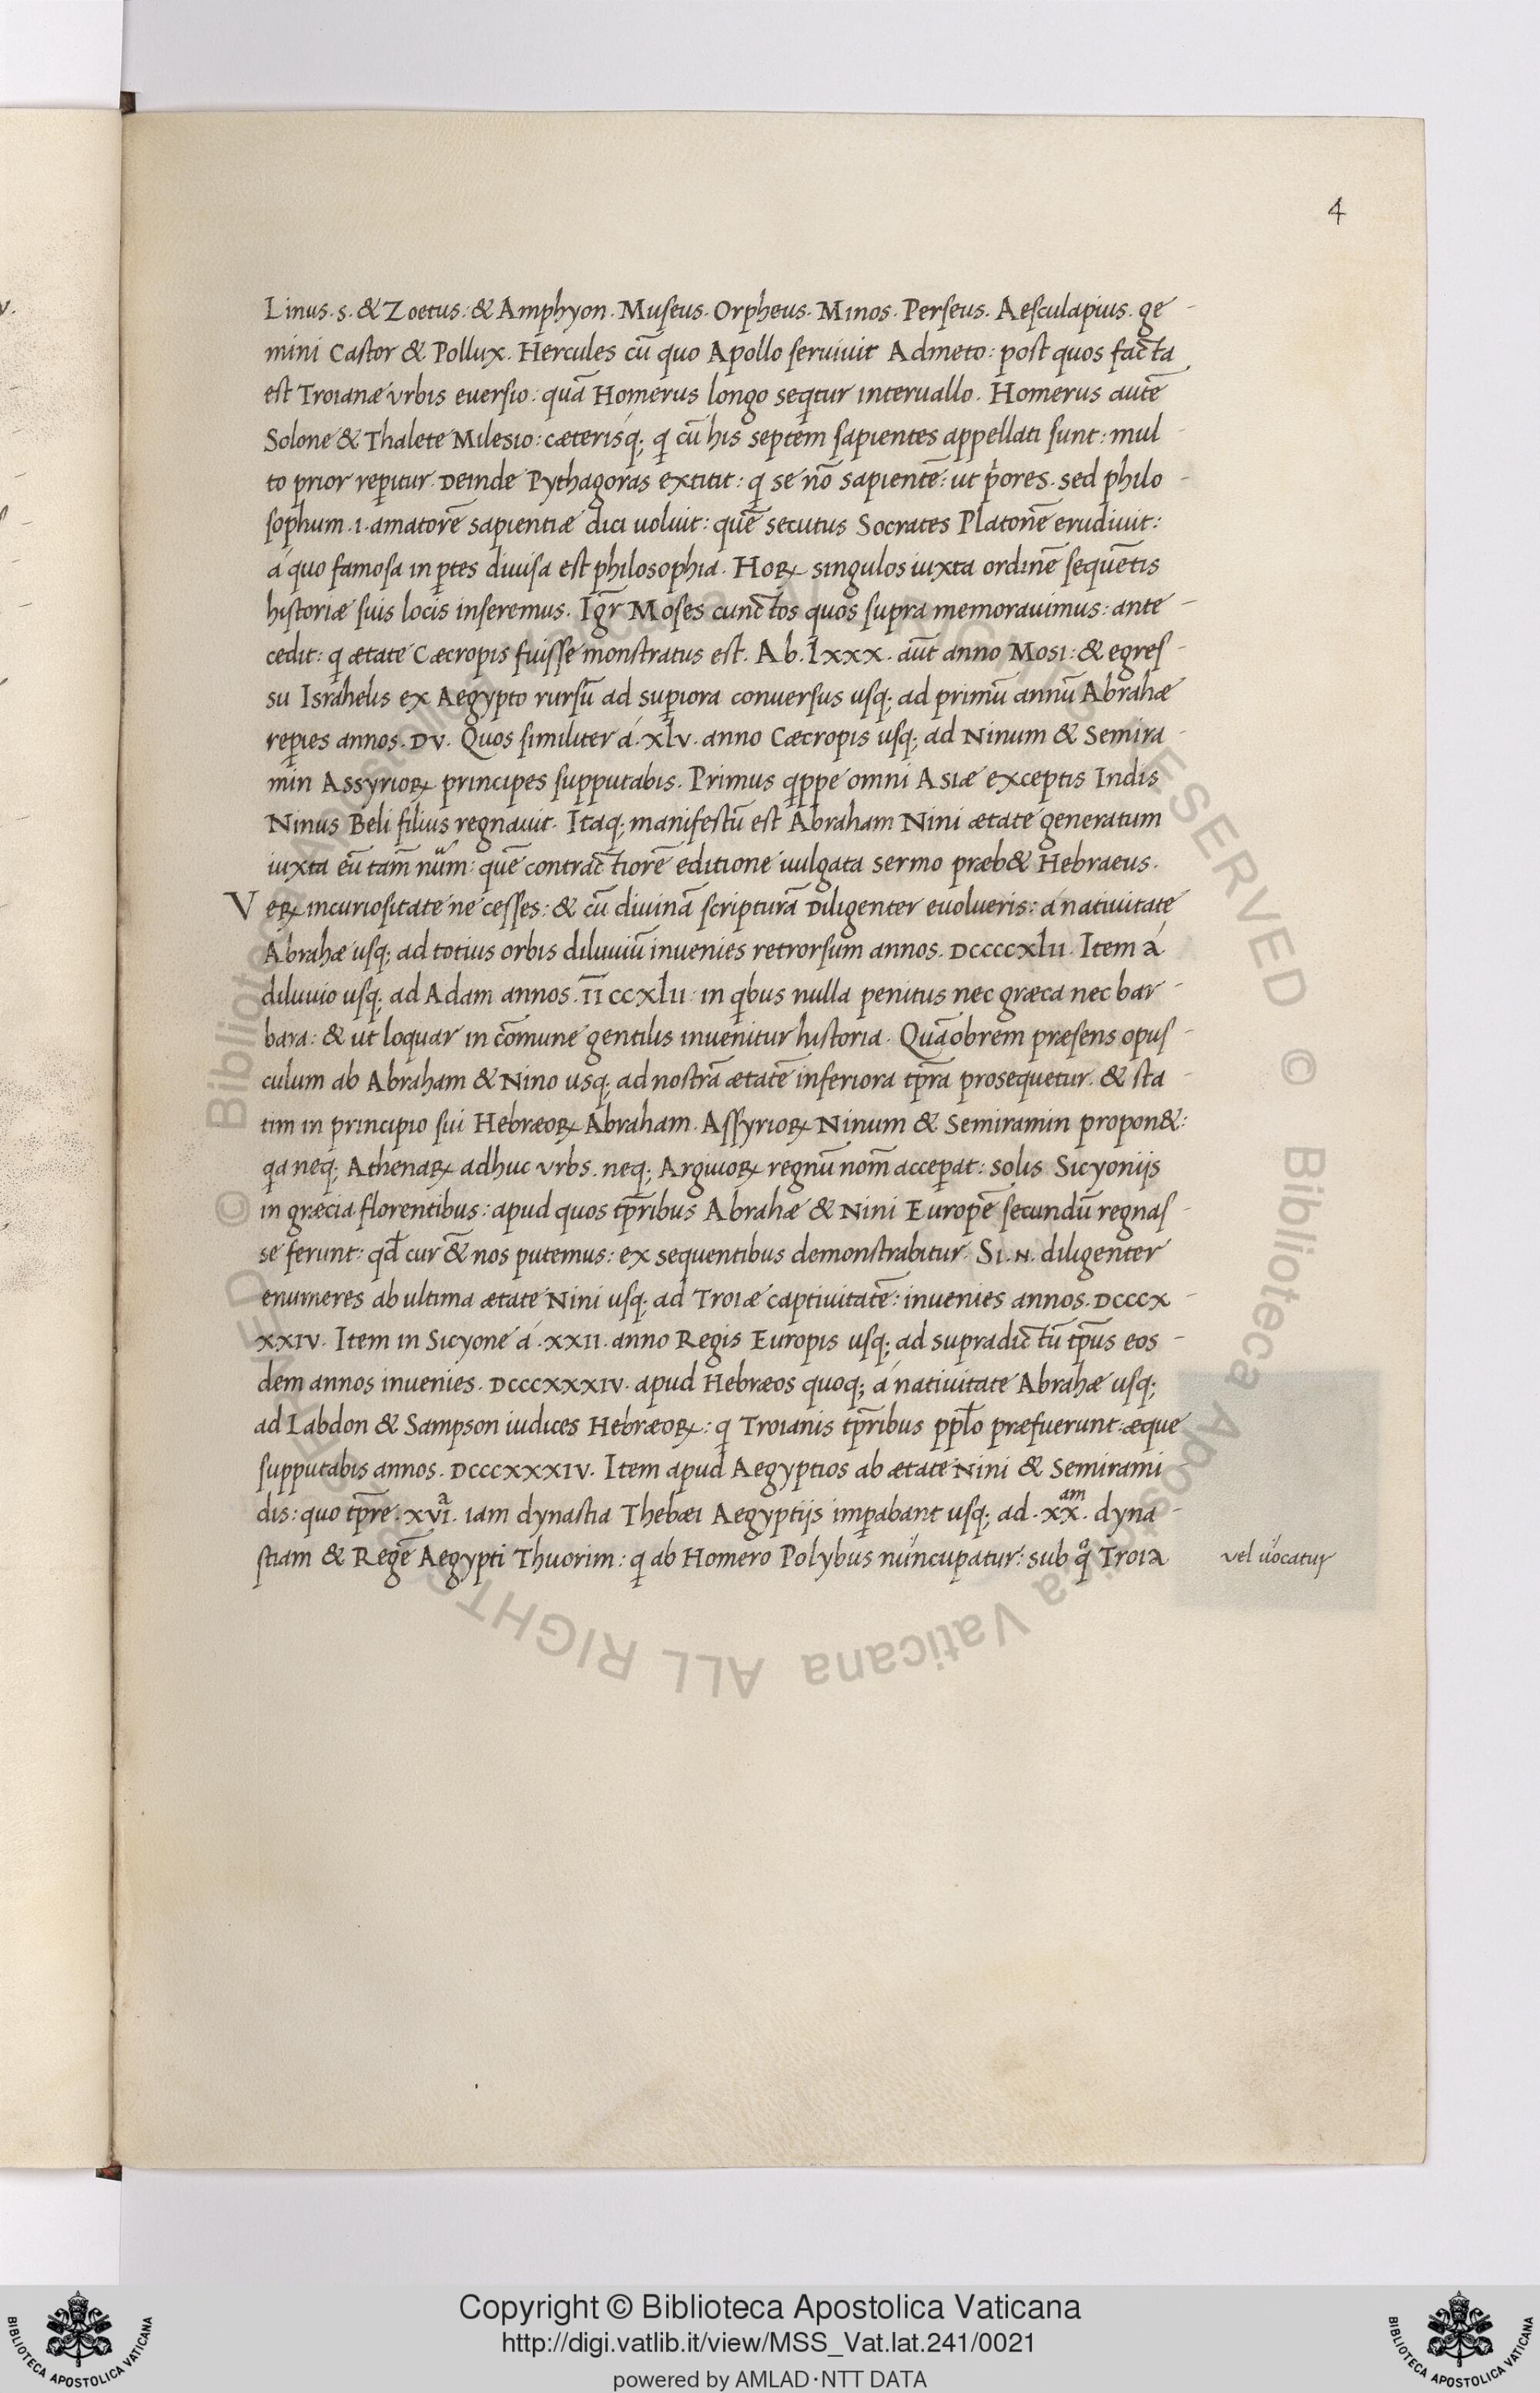 4
Linus. s. & Zoetus: & Amphyon. Museus. Orpheus. Minos. Perseus. Aesculapius. ge-
mini Castor & Pollux. Hercules cū quo Apollo seruiuit Admeto: post quos facta
est Troianæ vrbis euersio: quā Homerus longo seq̣tur interuallo. Homerus autē
Solone & Thalete Milesio: cæterisq; q̣ cū his septem sapientes appellati sunt: mul-
to prior rep̱itur. Deinde Pythagoras extitit: q̣ se nō sapientē: ut p̓ores. sed philo-
sophum .i. amatorē sapientiæ dici uoluit: quē secutus Socrates Platonē erudiuit:
á quo famosa in p̱tes diuisa est philosophia. Hoꝝ singulos iuxta ordinē sequētis
historiæ suis locis inseremus. Igr̄ Moses cunctos quos supra memorauimus: ante-
cedit: q̣ ætate Cæcropis fuisse monstratus est. Ab. lxxx. aūt anno Mosi: & egres-
su Israhelis ex Aegypto rursū ad sup̱iora conuersus usq; ad primū annū Abrahæ
rep̱ies annos. DV. Quos similiter á. xlv. anno Cæcropis usq; ad Ninum & Semira-
min Assyrioꝝ principes supputabis. Primus q̣ppe omni Asiæ exceptis Indis
Ninus Beli filius regnauit. Itaq; manifestū est Abraham Nini ætate generatum
iuxta eū tam̄ nūm: quē contractiorē editione uulgata sermo præb& Hebraeus.
Veꝝ incuriositate ne cesses: & cū diuinā scripturā diligenter euolueris: á natiuitate
Abrahæ usq; ad totius orbis diluuiū inuenies retrorsum annos. DCCCCXLII. Item á
diluuio usq; ad Adam annos. I̅I̅ CCXLII: in q̣bus nulla penitus nec græca nec bar-
bara: & ut loquar in cōmune gentilis inuenitur historia. Quāobrem præsens opus-
culum ab Abraham & Nino usq; ad nostrā ætatē inferiora tp̄ra prosequetur. & sta-
tim in principio sui Hebræoꝝ Abraham. Assyrioꝝ Ninum & Semiramin propon&:
q̣a neq; Athenaꝝ adhuc vrbs. neq; Argiuoꝝ regnū nom̄ accep̱at: solis Sicyonijs
in græcia florentibus: apud quos tp̄ribus Abrahæ & Nini Europē secundū regnas-
se ferunt: qđ cur &̄ nos putemus: ex sequentibus demonstrabitur. Si. N. diligenter
enumeres ab ultima ætate Nini usq; ad Troiæ captiuitatē: inuenies annos. DCCCX-
XXIV. Item in Sicyone á. XXII. anno Regis Europis usq; ad supradictū tp̄us eos-
dem annos inuenies. DCCCXXXIV. apud Hebræos quoq; á natiuitate Abrahæ usq;
ad Labdon & Sampson iudices Hebræoꝝ: q̣ Troianis tp̄ribus pplō præfuerunt: æque
supputabis annos. DCCCXXXIV. Item apud Aegyptios ab ætate Nini & Semirami-
dis: quo tp̄re. XVIᵃ. iam dynastia Thebæi Aegyptijs imp̱abant usq; ad. XXᵃᵐ. dyna-
stiam & Regē Aegypti Thuorim: q̣ ab Homero Polybus nuncupatur: sub qͦ Troia
vel uocatur
© Biblioteca Apostolica Vaticana ALL RIGHTS RESERVED © Biblioteca Apostolica Vaticana ALL RIGHTS RESERVED
Copyright © Biblioteca Apostolica Vaticana
http://digi.vatlib.it/view/MSS_Vat.lat.241/0021
powered by AMLAD·NTT DATA
BIBLIOTECA APOSTOLICA VATICANA
BIBLIOTECA APOSTOLICA VATICANA